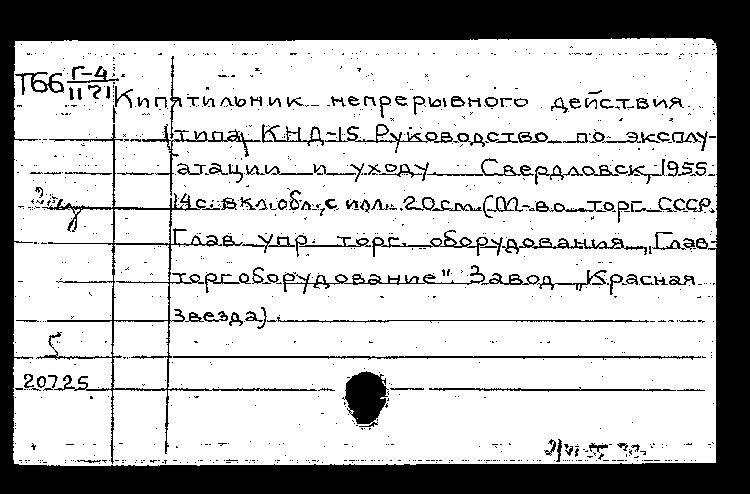 Т66 Г-4
1171
Кипятильник непрерывного действия
(типа) КНД-15 Руководство по эксплу-
атации и уходу. Свердловск, 1955.
14с. вкл. обл., с илл. 20см. (М-во торг. СССР.
Глав. упр. торг. оборудования „Глав-
торгоборудование". Завод „Красная
Звезда).
5
20725